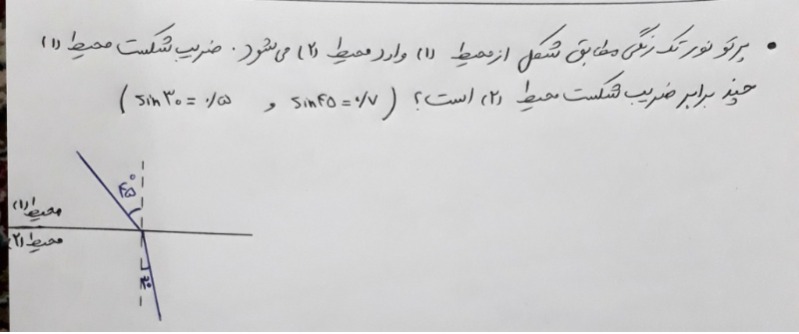 • پرتو نور تک رنگی مطابق شکل از محیط (۱) وارد محیط (۲) می‌شود. ضریب شکست محیط (۱)
چند برابر ضریب شکست محیط (۲) است؟ (sin۴۵=۰/۷ و sin۳۰=۰/۵)
۴۵°
محیط (۱)
محیط (۲)
۳۰°